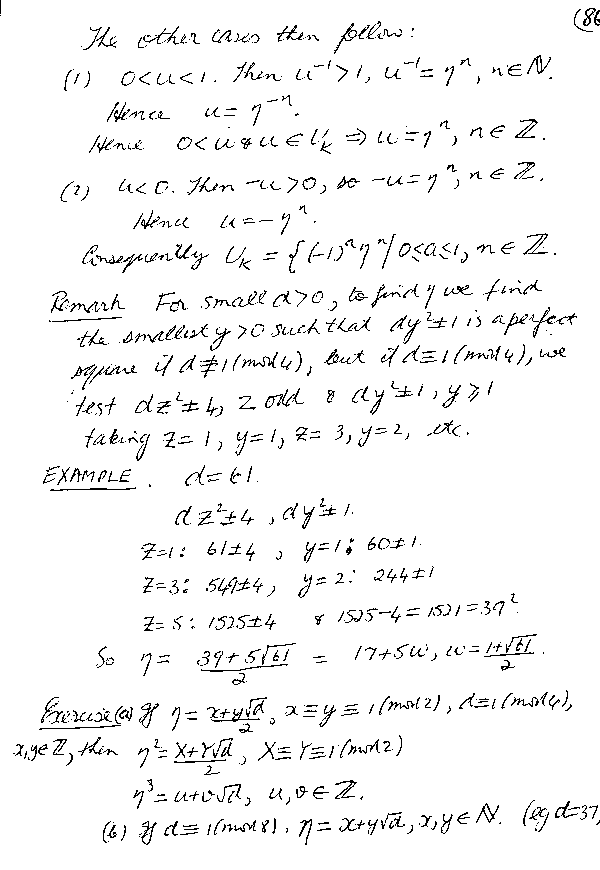 (86
The other cases then follow:
(1) 0<u<1. Then u⁻¹>1, u⁻¹=ηⁿ, n∈ℕ.
Hence u=η⁻ⁿ.
Hence 0<u & u∈U_K ⇒ u=ηⁿ, n∈ℤ.
(2) u<0. Then -u>0, so -u=ηⁿ, n∈ℤ.
Hence u=-ηⁿ.
Consequently U_K = {(-1)ᵃηⁿ | 0≤a≤1, n∈ℤ.
Remark For small d>0, to find η we find
the smallest y>0 such that dy²±1 is a perfect
square if d≢1(mod4), but if d≡1(mod4), we
test dz²±4, z odd & dy²±1, y≥1
taking z=1, y=1, z=3, y=2, etc.
EXAMPLE. d=61.
dz²±4, dy²±1.
z=1: 61±4, y=1: 60±1
z=3: 549±4, y=2: 244±1
z=5: 1525±4 & 1525-4=1521=39².
So η = (39+5√61)/2 = 17+5w, w=(1+√61)/2.
Exercise (a) If η=(x+y√d)/2, x≡y≡1(mod2), d≡1(mod4),
x,y∈ℤ, then η²=(X+Y√d)/2, X≡Y≡1(mod2)
η³=u+v√d, u,v∈ℤ.
(b) If d≡1(mod8), η=x+y√d, x,y∈ℕ. (eg d=37,